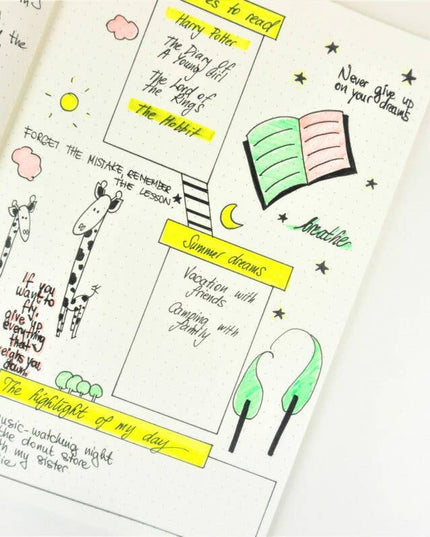 es to read
Harry Potter
The Diary of
A Young Girl
The Lord of
the Rings
The Hobbit
Never give up
on your dreams
the
FORGET THE MISTAKE, REMEMBER
THE LESSON
breathe
Summer dreams
Vacation with
friends
Camping with
family
If you
want to
fly,
give up
everything
that
weighs you
down
The highlight of my day
music-watching night
the donut store
with my sister